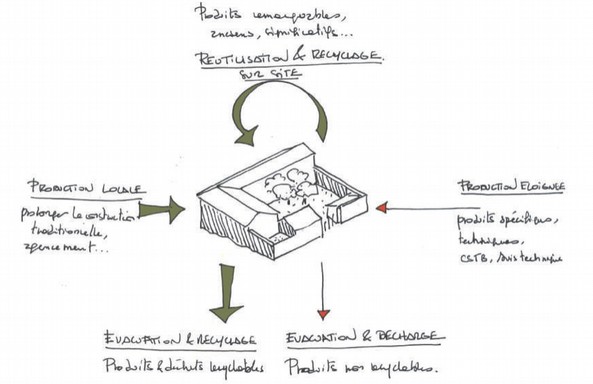 Produits remarquables,
anciens, significatifs...
RÉUTILISATION & RECYCLAGE
SUR SITE
PRODUCTION LOCALE
prolonger la construction
traditionnelle,
agencement...
PRODUCTION ELOIGNEE
produits spécifiques,
techniques,
CSTB, Avis technique
EVACUATION & RECYCLAGE
Produits & déchets recyclables
EVACUATION & DECHARGE
Produits non recyclables.